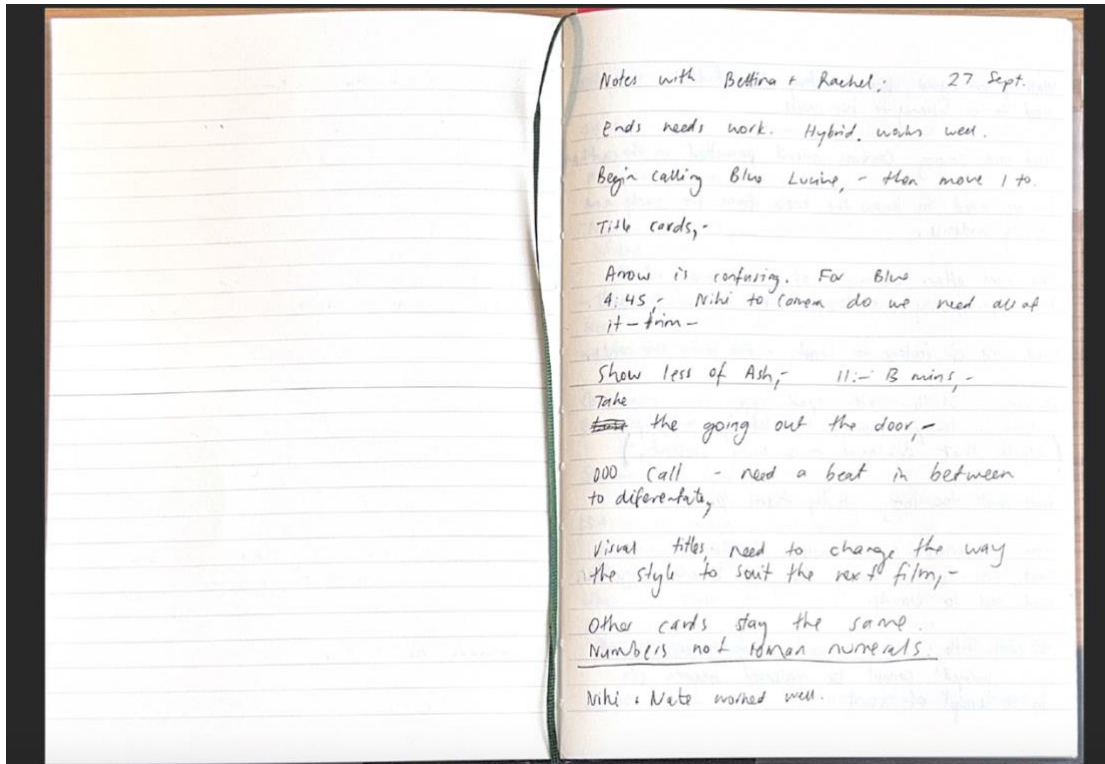 Notes with Bettina + Rachel: 27 Sept.
Ends needs work. Hybrid. works well.
Begin calling Blue Lucine, - then move 1 to.
Title cards,-
Arrow is confusing. For Blue
4:45,- Niki to do we need all of
it - trim -
Show less of Ash,- 11:- 13 mins,-
Take
the going out the door,-
000 call - need a beat in between
to diferentate,
Visual titles, need to change the way
the style to souit the next film,-
Other cards stay the same.
Numbers not roman numerals.
Niki + Nate worked well.